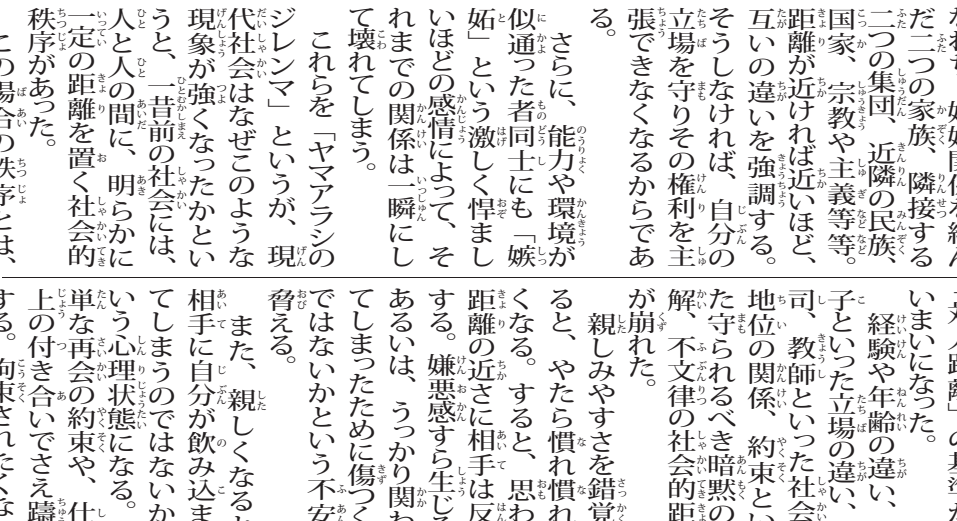 だ二つの家族、隣接する
二つの集団、近隣の民族、
国家、宗教や主義等等。
距離が近ければ近いほど、
互いの違いを強調する。
そうしなければ、自分の
立場を守りその権利を主
張できなくなるからであ
る。
さらに、能力や環境が
似通った者同士にも「嫉
妬」という激しく悍まし
いほどの感情によって、そ
れまでの関係は一瞬にし
て壊れてしまう。
これらを「ヤマアラシの
ジレンマ」というが、現
代社会はなぜこのような
現象が強くなったかとい
うと、一昔前の社会には、
人と人の間に、明らかに
一定の距離を置く社会的
秩序があった。
この場合の秩序とは、
いまいになった。
経験や年齢の違い、
子といった立場の違い、
司、教師といった社会
地位の関係、約束とい
た守られるべき暗黙の
解、不文律の社会的距
が崩れた。
親しみやすさを錯覚
ると、やたら慣れ慣れ
くなる。すると、思わ
距離の近さに相手は反
する。嫌悪感すら生じる
あるいは、うっかり関わ
てしまったために傷つく
ではないかという不安
脅える。
また、親しくなると
相手に自分が飲み込ま
てしまうのではないか
いう心理状態になる。
単な再会の約束や、仕
上の付き合いでさえ躊
する。拘束されたくな